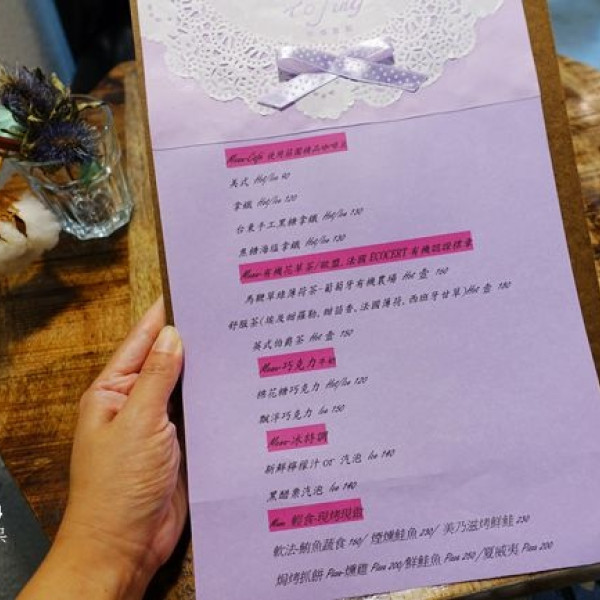 Menu-Cafe 使用莊園精品咖啡豆
美式 Hot/Ice 90
拿鐵 Hot/Ice 120
台東手工黑糖拿鐵 Hot/Ice 150
焦糖海塩拿鐵 Hot/Ice 130
Menu-有機花草茶/歐盟.法國 ECOCERT 有機認證標章
馬鞭草綠薄荷茶-葡萄牙有機農場 Hot 壺 160
舒服茶(埃及甜羅勒,甜茴香,法國薄荷,西班牙甘草)Hot 壺 180
英式伯爵茶 Hot 壺 150
Menu-巧克力牛奶
棉花糖巧克力 Hot/Ice 120
飄浮巧克力 Ice 150
Menu-冰特調
新鮮檸檬汁 or 汽泡 Ice 140
黑醋栗汽泡 Ice 140
Menu 輕食-現烤現做
軟法-鮪魚蔬食 190/ 煙燻鮭魚 230/ 美乃滋烤鮮鮭 230
焗烤抓餅 Pizza-燻雞 Pizza 200/鮮鮭魚 Pizza 250 /夏威夷 Pizza 200